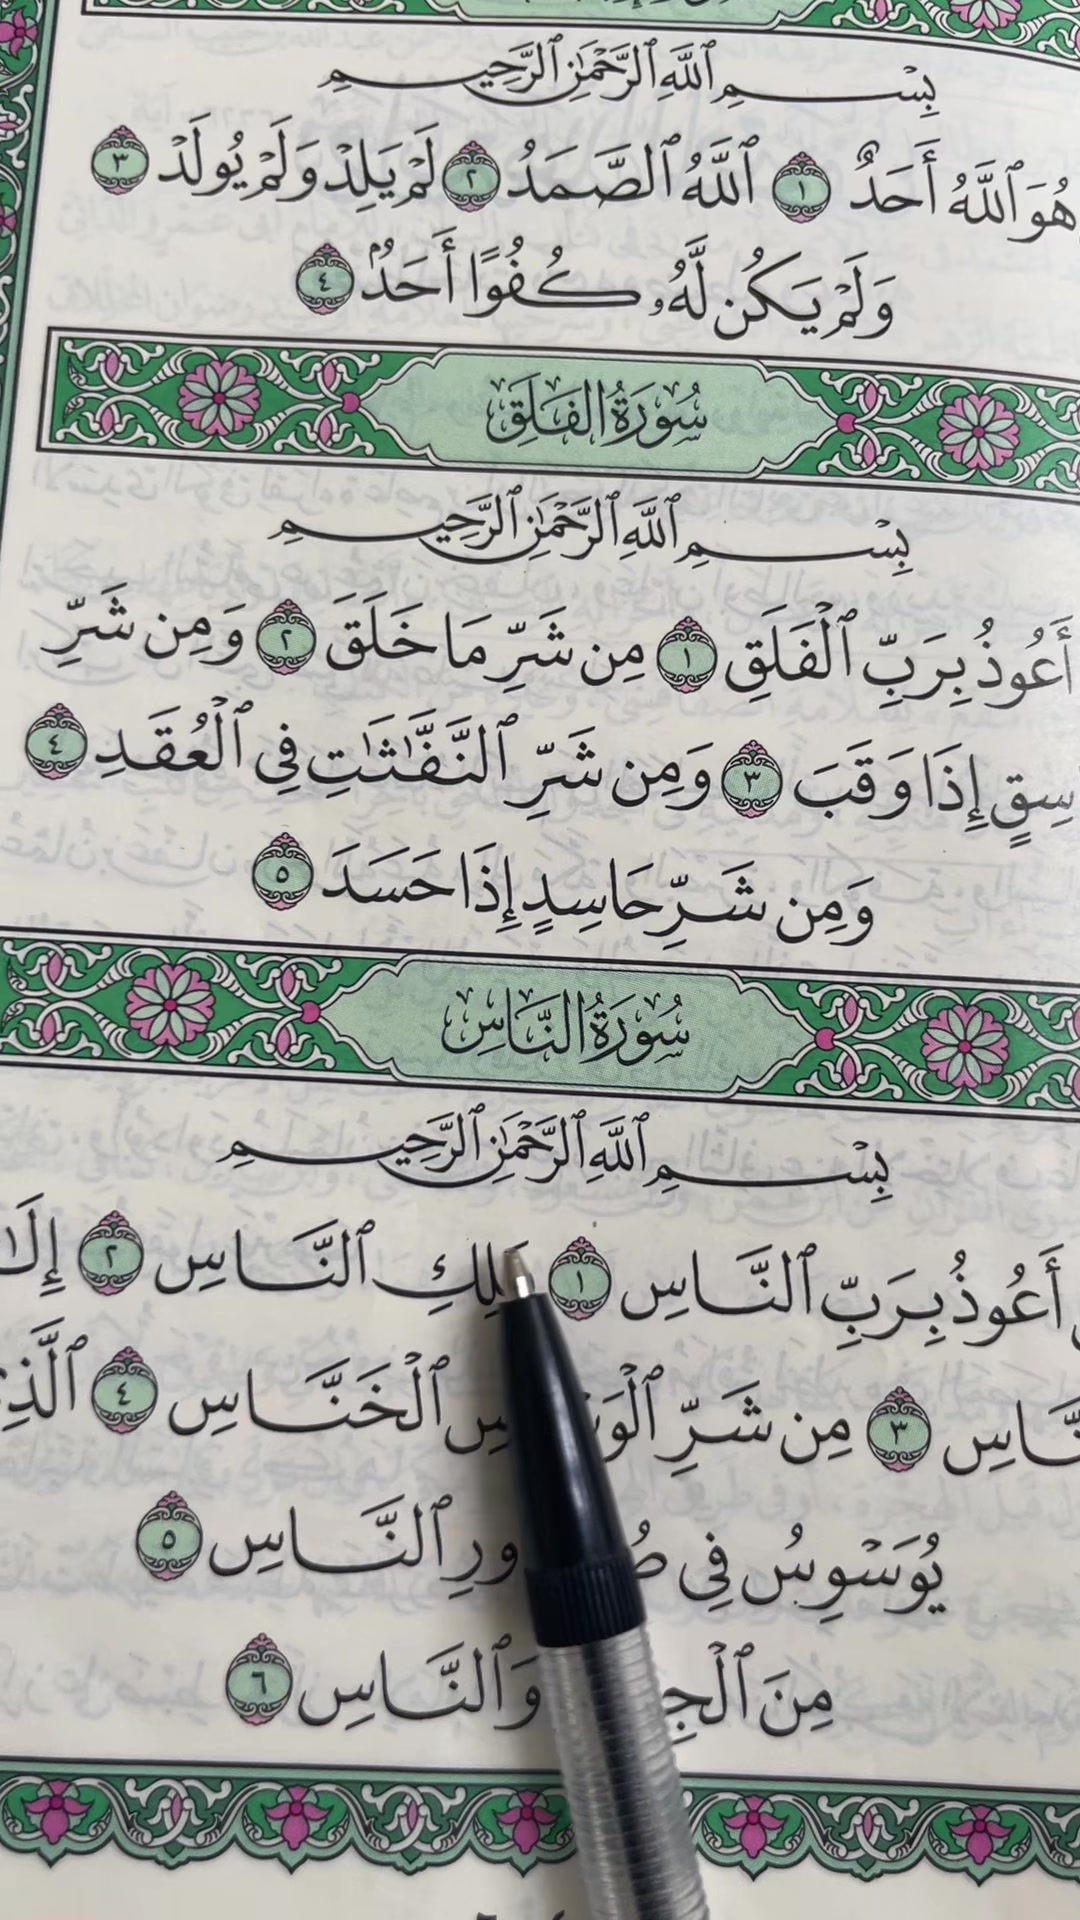 بِسْمِ ٱللَّهِ ٱلرَّحْمَٰنِ ٱلرَّحِيمِ
هُوَ ٱللَّهُ أَحَدٌ ١ ٱللَّهُ ٱلصَّمَدُ ٢ لَمْ يَلِدْ وَلَمْ يُولَدْ ٣
وَلَمْ يَكُن لَّهُۥ كُفُوًا أَحَدٌۢ ٤
سُورَةُ الفَلَقِ
بِسْمِ ٱللَّهِ ٱلرَّحْمَٰنِ ٱلرَّحِيمِ
أَعُوذُ بِرَبِّ ٱلْفَلَقِ ١ مِن شَرِّ مَا خَلَقَ ٢ وَمِن شَرِّ
سِقٍ إِذَا وَقَبَ ٣ وَمِن شَرِّ ٱلنَّفَّٰثَٰتِ فِى ٱلْعُقَدِ ٤
وَمِن شَرِّ حَاسِدٍ إِذَا حَسَدَ ٥
سُورَةُ النَّاسِ
بِسْمِ ٱللَّهِ ٱلرَّحْمَٰنِ ٱلرَّحِيمِ
أَعُوذُ بِرَبِّ ٱلنَّاسِ ١ مَلِكِ ٱلنَّاسِ ٢ إِلَٰ
نَّاسِ ٣ مِن شَرِّ ٱلْخَنَّاسِ ٤ ٱلَّذِ
يُوَسْوِسُ فِى ٱلنَّاسِ ٥
مِنَ وَٱلنَّاسِ ٦